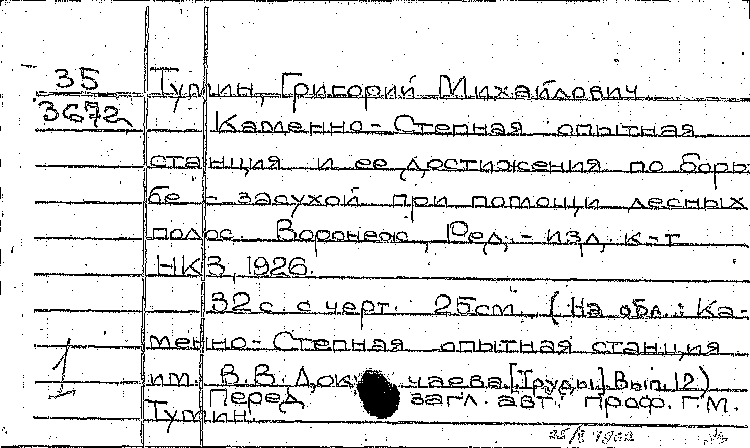 35
3672
Тумин, Григорий Михайлович
Каменно-Степная опытная
станция и ее достижения по борь
бе - засухой при помощи лесных
полос. Воронеж, Ред.-изд. к-т
НКЗ, 1926.
32 с. с черт. 25см. (На обл.: Ка-
менно-Степная опытная станция
1
им. В.В. Докучаева. [Труды.] Вып. 12)
Перед загл. авт: проф. Г.М.
Тумин.